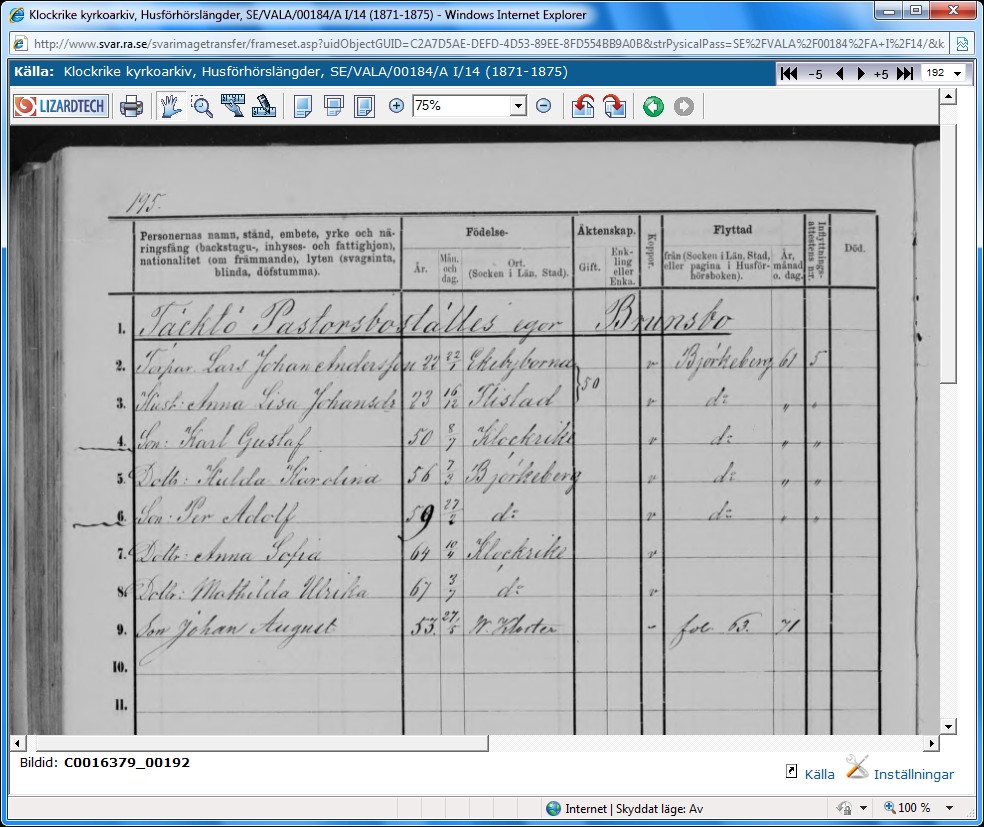 Klockrike kyrkoarkiv, Husförhörslängder, SE/VALA/00184/A I/14 (1871-1875) - Windows Internet Explorer
http://www.svar.ra.se/svarimagetransfer/frameset.asp?uidObjectGUID=C2A7D5AE-DEFD-4D53-89EE-8FD554BB9A0B&strPysicalPass=SE%2FVALA%2F00184%2FA+I%2F14/&k
Källa: Klockrike kyrkoarkiv, Husförhörslängder, SE/VALA/00184/A I/14 (1871-1875) -5 +5 192
LIZARDTECH 75%
195.
Personernas namn, stånd, embete, yrke och nä-
ringsfång (backstugu-, inhyses- och fattighjon),
nationalitet (om främmande), lyten (svagsinta,
blinda, döfstumma).
Födelse-
År.
Mån. och dag.
Ort.
(Socken i Län, Stad).
Äktenskap.
Gift.
Enk-
ling
eller
Enka.
Koppor.
Flyttad
från (Socken i Län, Stad,
eller pagina i Husför-
hörsboken).
År,
månad
o. dag.
Inflyttnings-
attestens n:r.
Död.
1. Täcktö Pastorsboställes egor Brunsbo
2. Torpar. Lars Johan Andersson 22 Ekebyborna v Björkeberg 61 5
3. Hust: Anna Lisa Johansdr 23 16/12 Flistad } 50 v d:o " "
4. Son: Karl Gustaf 50 8/7 Klockrike v d:o " "
5. Dottr: Hulda Karolina 56 Björkeberg v d:o " "
6. Son: Per Adolf 59 27/2 d:o v d:o " "
7. Dottr: Anna Sofia 64 Klockrike v
8. Dottr: Mathilda Ulrika 67 3/7 d:o v
9. Son Johan August 53. 27/5 W. Kloster - fol 63. 71
10.
11.
Bildid: C0016379_00192
Källa Inställningar
Internet | Skyddat läge: Av 100 %